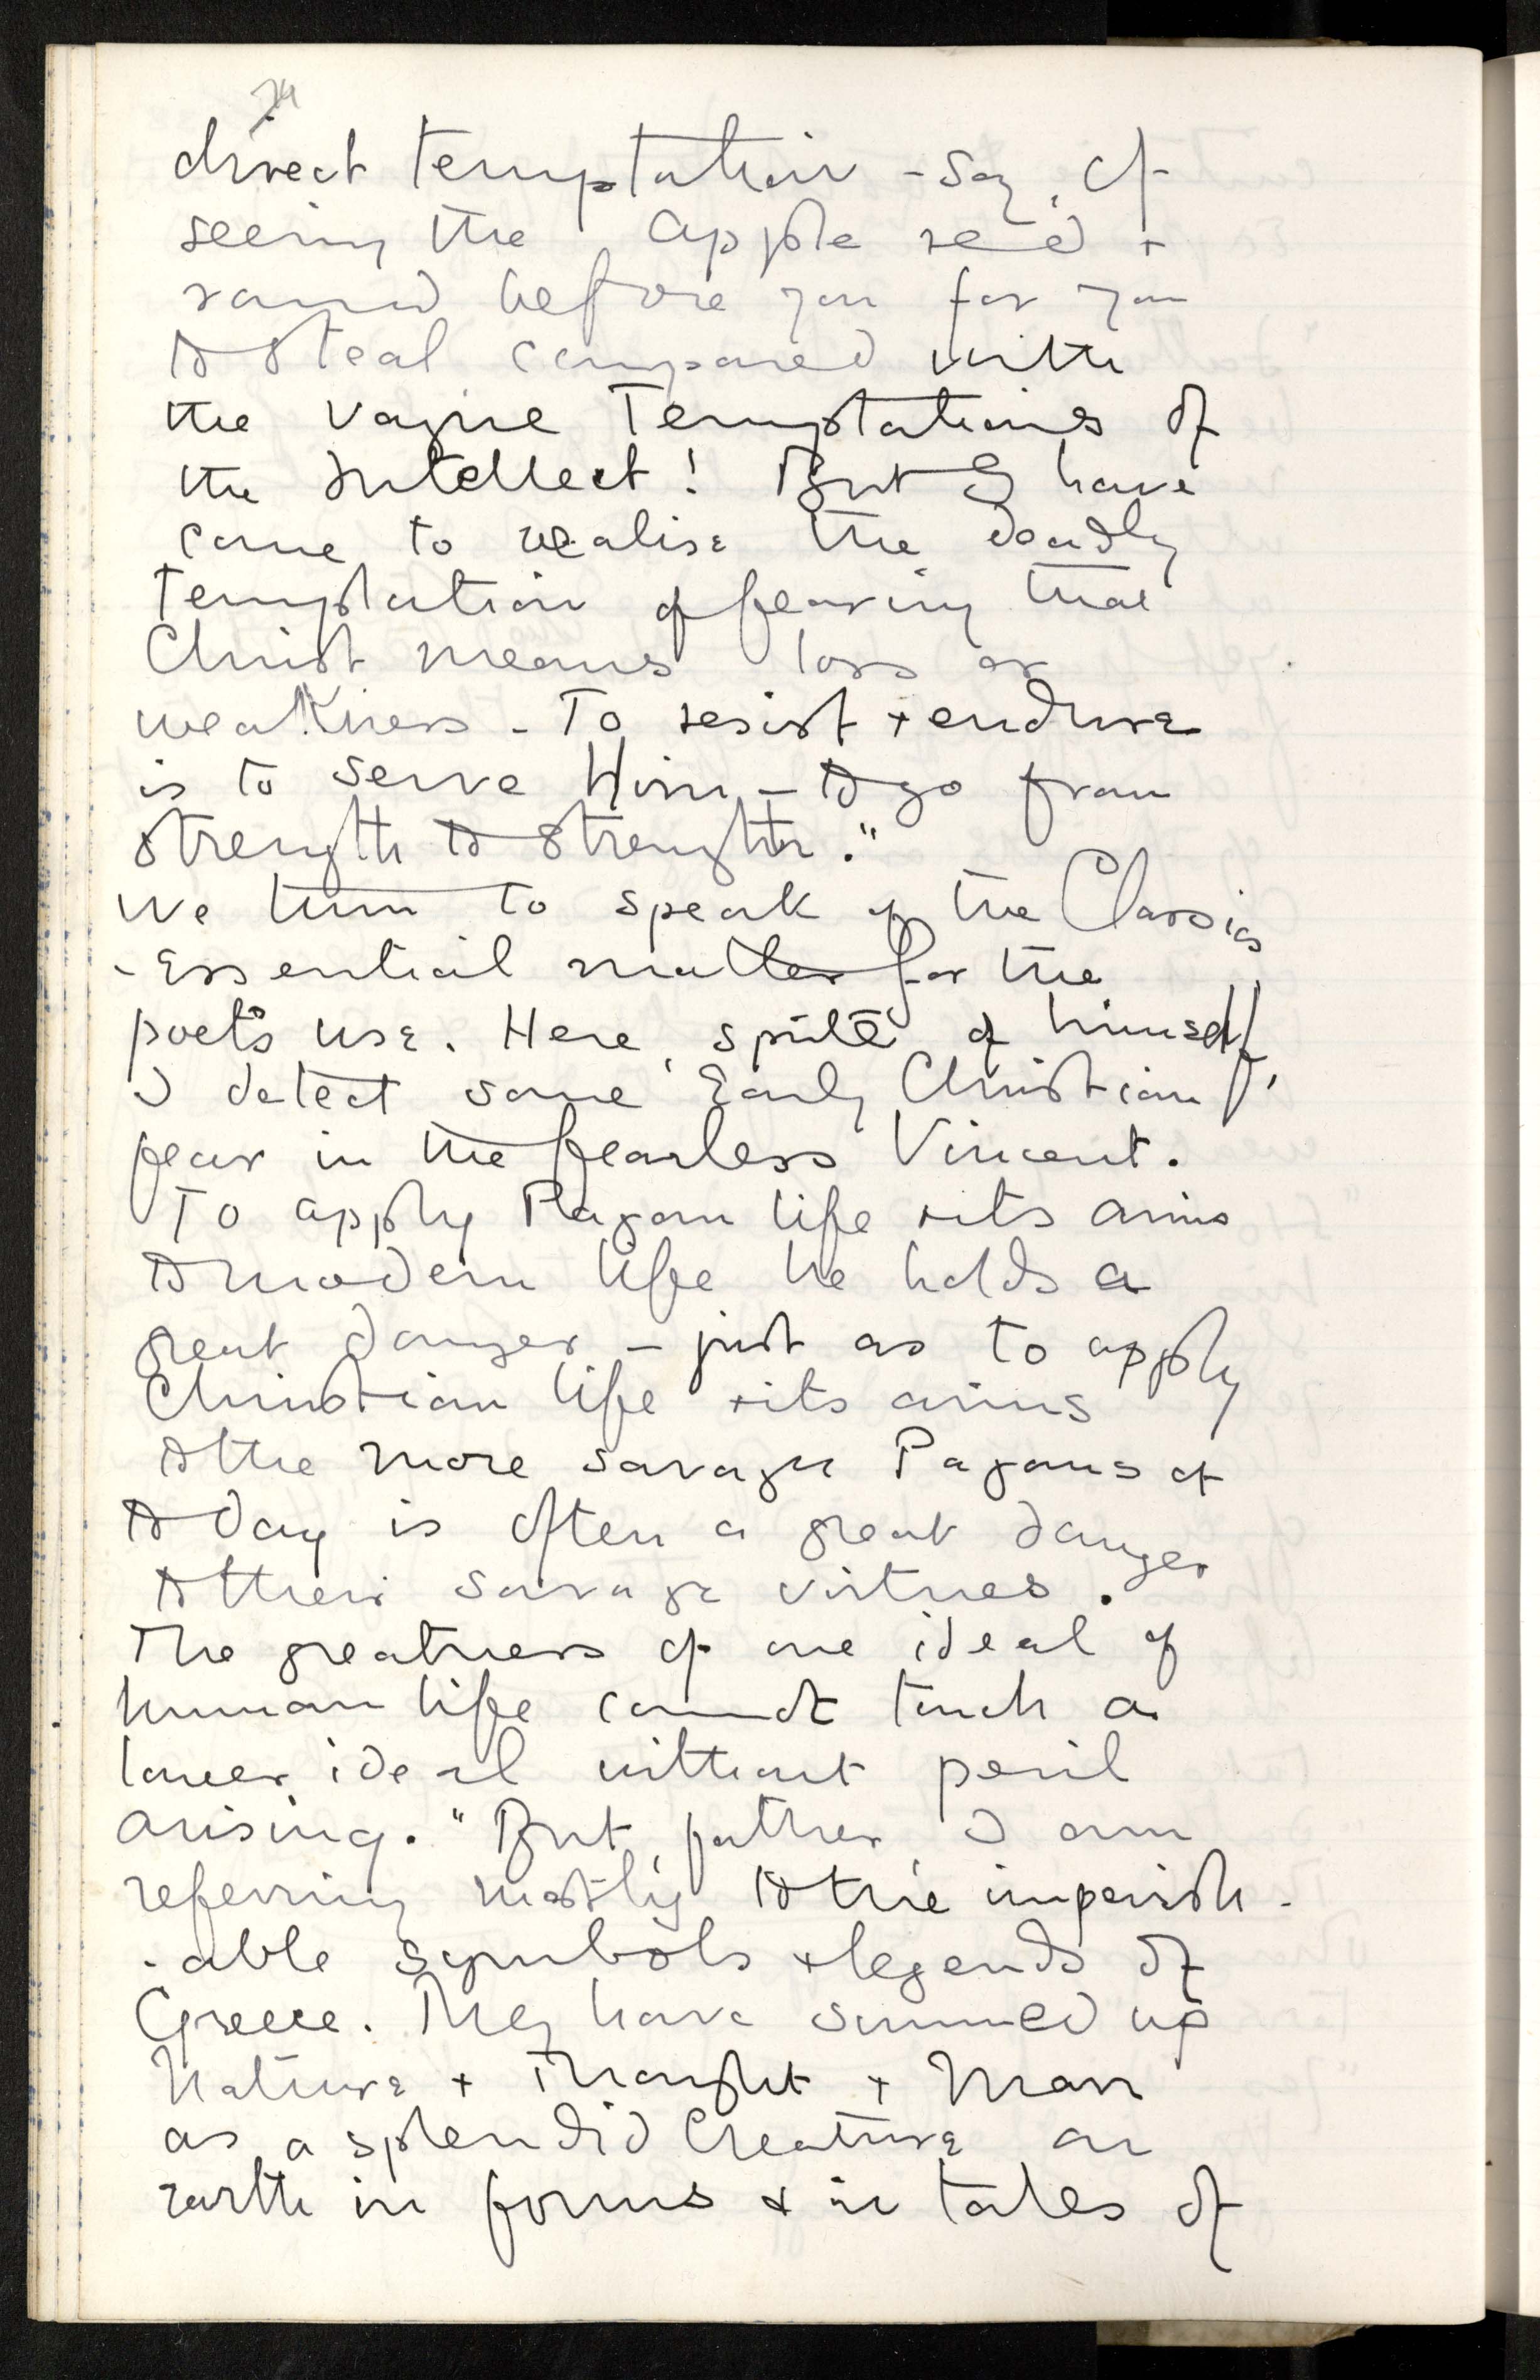 direct temptation - say, of
seeing the apple red +
round before you for you
to steal compared with
the vague Temptations of
the Intellect! But I have
come to realise the deadly
Temptation of fearing that
Christ means loss or
weakness - To resist + endure
is to serve Him - to go from
strength to strength."
We turn to speak of the Classics
- Essential matter for the
poet's use. Here, spite of himself,
I detect some Early Christian
fear in the fearless Vincent.
To apply Pagan life + its aims
to modern life he holds a
great danger - just as to apply
Christian life + its aims
to the more savage Pagans of
to day is often a great danger
to their savage virtues.
The greatness of one ideal of
human life cannot touch a
lower ideal without peril
arising. "But, father, I am
referring mostly to the imperish-
-able symbols + legends of
Greece. They have summed up
Nature + Thought + Man
as a splendid Creature on
earth in forms + in tales of